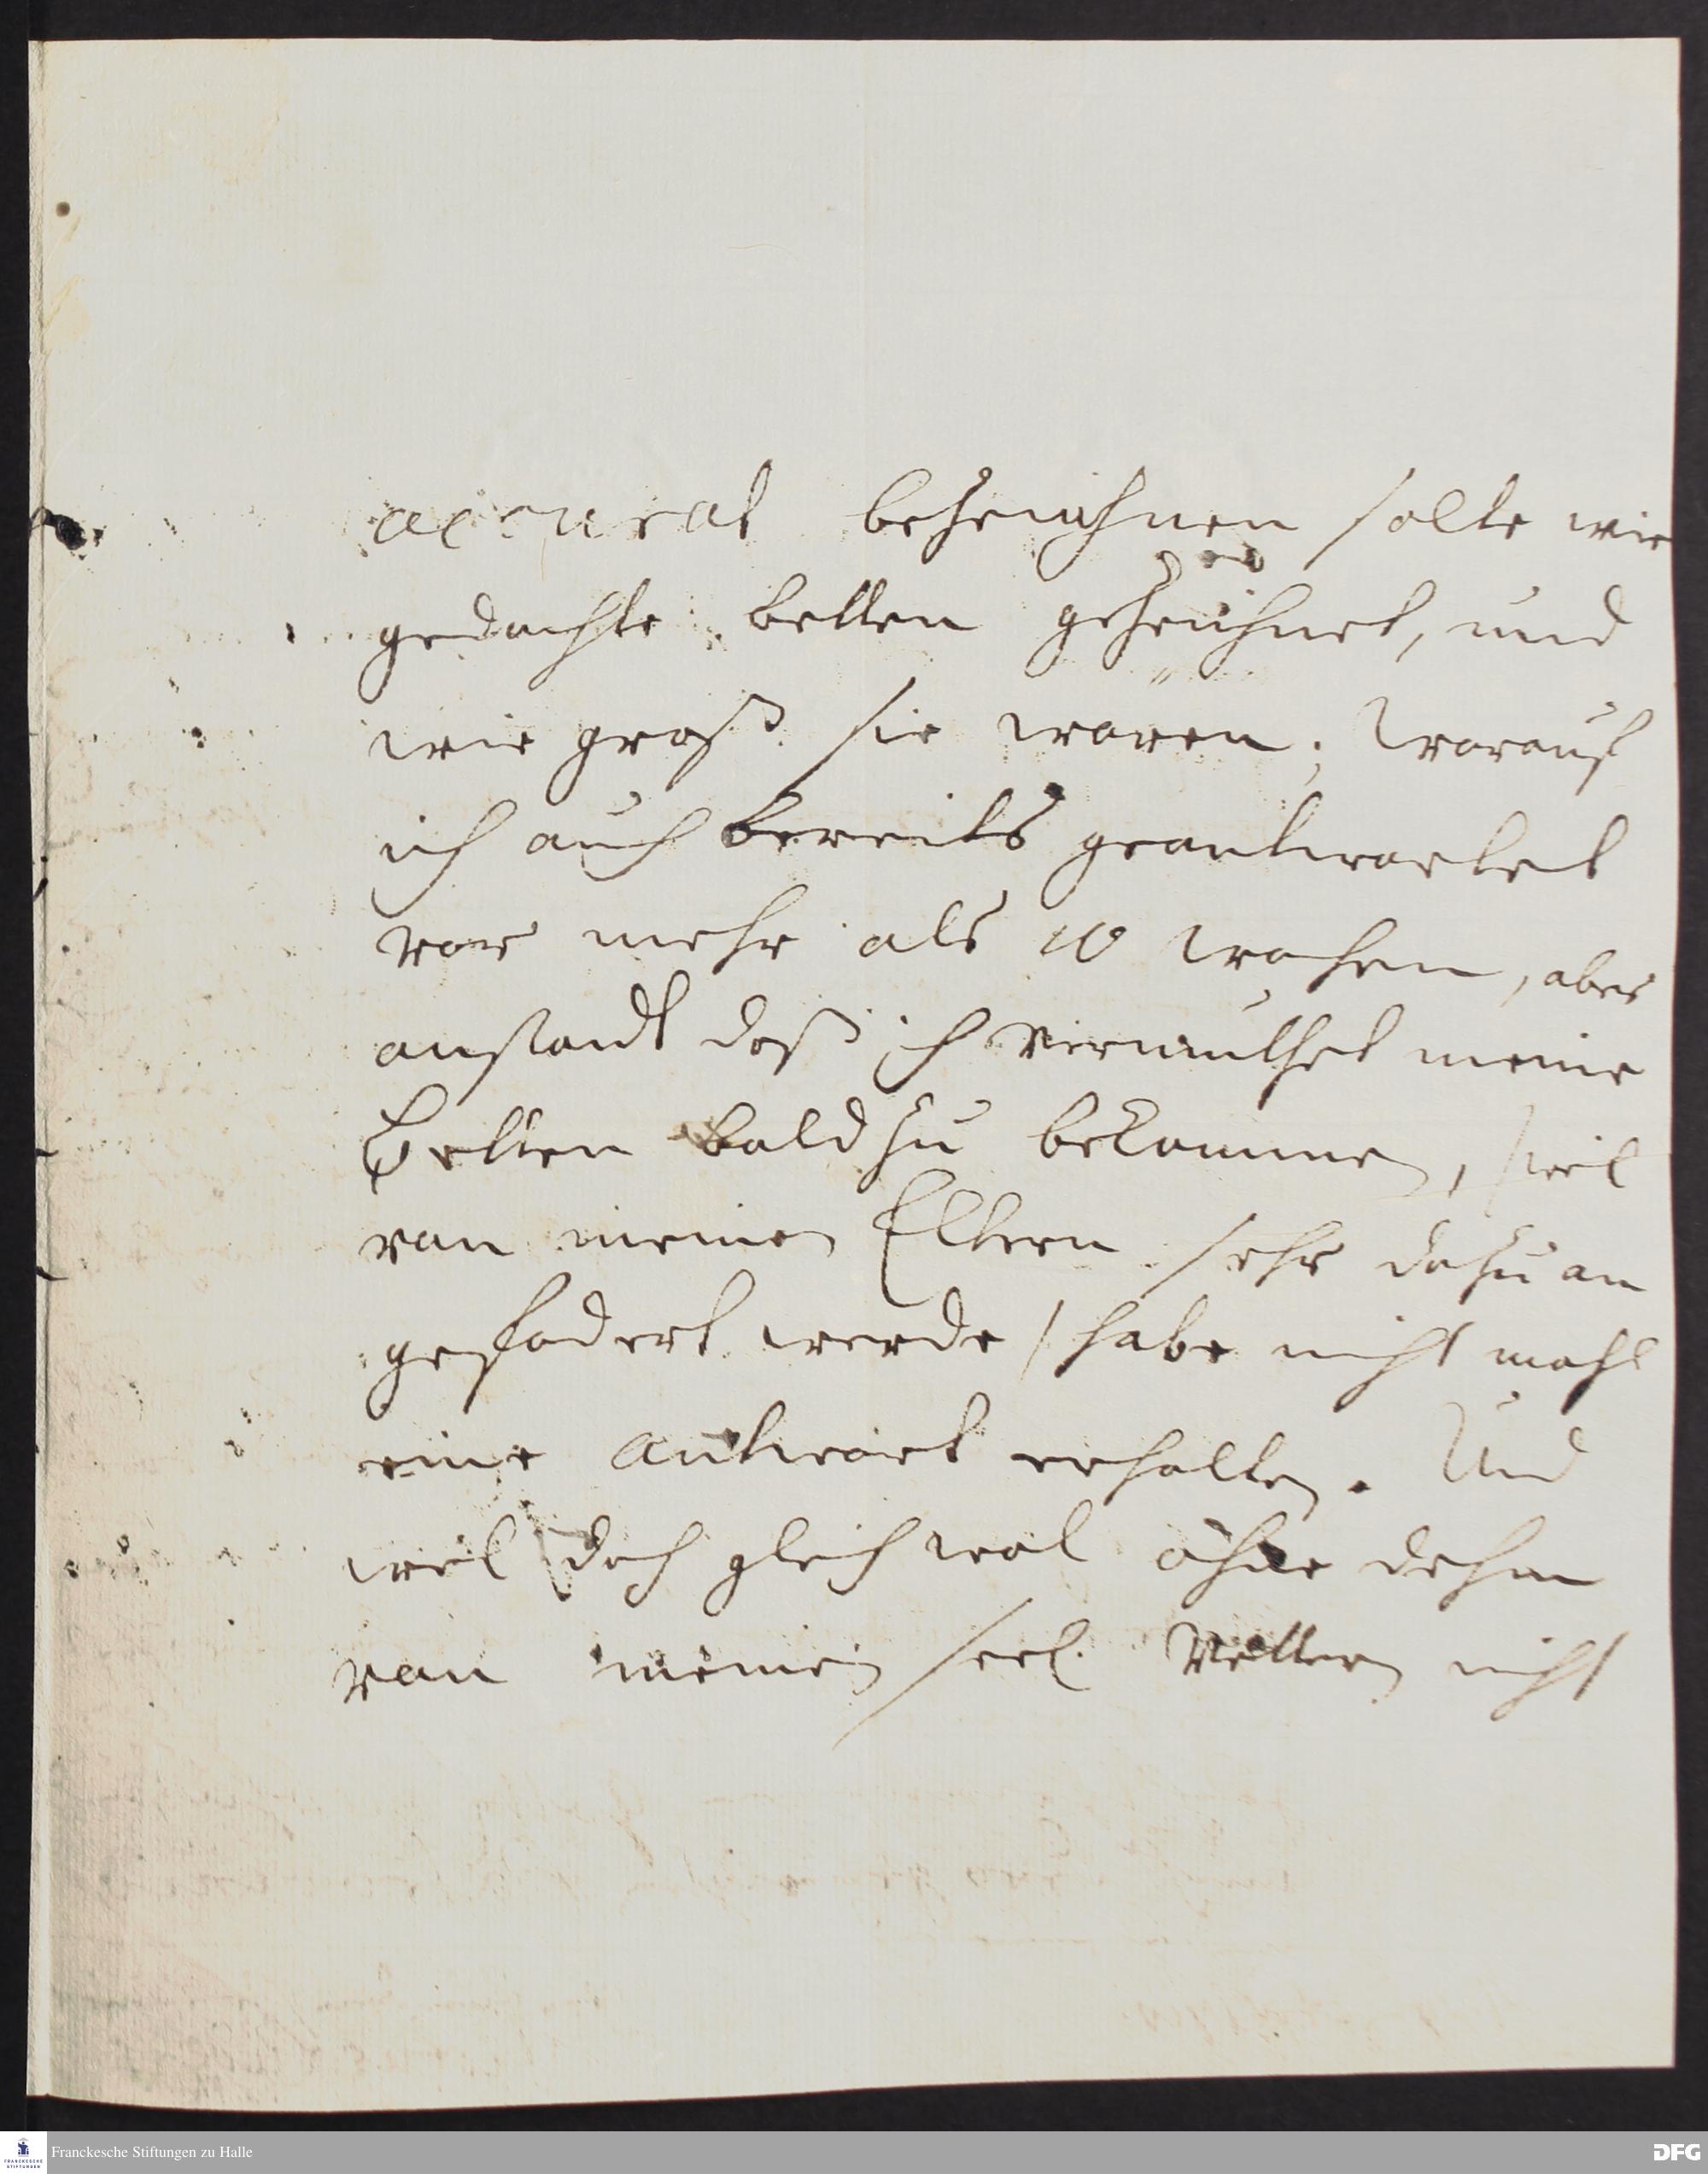 accurat bezeichnen solte wie
gedachte betten gezeichnet, und
wie groß sie waren; worauf
ich auch bereits geantwortet
vor mehr als 10 wochen, aber
anstandt daß ich vermuthet meine
Betten bald zu bekommen, weil
von meinen Eltern sehr dazu an
gefodert werde / habe nicht mahl
eine antwort erhalten. Und
weil doch gleich wol ohne dehm
von meinen seel. Vettern nicht
Franckesche Stiftungen zu Halle
DFG
FRANCKESCHE
STIFTUNGEN